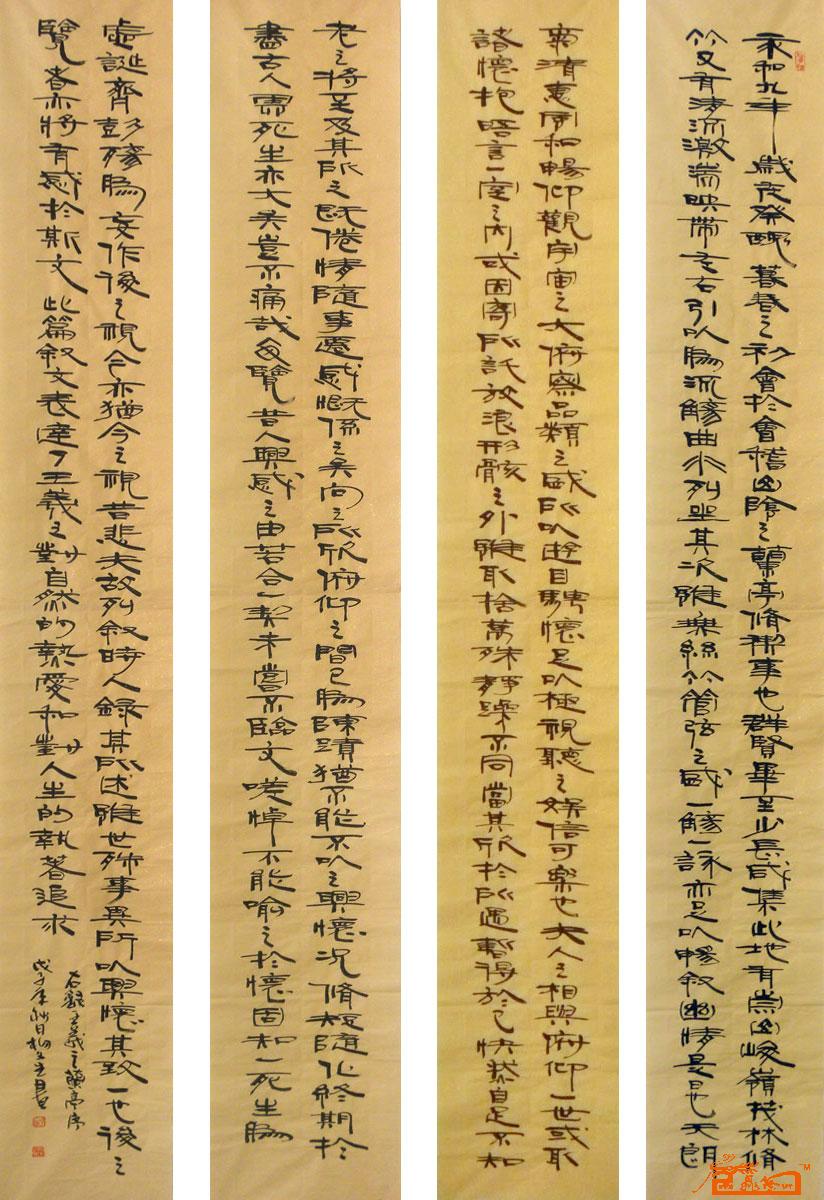 永和九年歲在癸醜暮春之初會於會稽山陰之蘭亭脩禊事也群賢畢至少長咸集此地有崇山峻嶺茂林脩
竹又有清流激湍映帶左右引以爲流觴曲水列坐其次雖無絲竹管弦之盛一觴一詠亦足以暢敘幽情是日也天朗
氣清惠風和暢仰觀宇宙之大俯察品類之盛所以遊目騁懷足以極視聽之娛信可樂也夫人之相與俯仰一世或取
諸懷抱晤言一室之內或因寄所託放浪形骸之外雖取捨萬殊靜躁不同當其欣於所遇暫得於己快然自足不知
老之將至及其所之既倦情隨事遷感慨係之矣向之所欣俯仰之間已爲陳蹟猶不能不以之興懷況脩短隨化終期於
盡古人雲死生亦大矣豈不痛哉每覽昔人興感之由若合一契未嘗不臨文嗟悼不能喻之於懷固知一死生爲
虛誕齊彭殤爲妄作後之視今亦猶今之視昔悲夫故列敘時人錄其所述雖世殊事異所以興懷其致一也後之
覽者亦將有感於斯文 此篇敘文表達了王羲之對自然的熱愛和對人生的執著追求
右錄王羲之蘭亭序
戊子年秋日